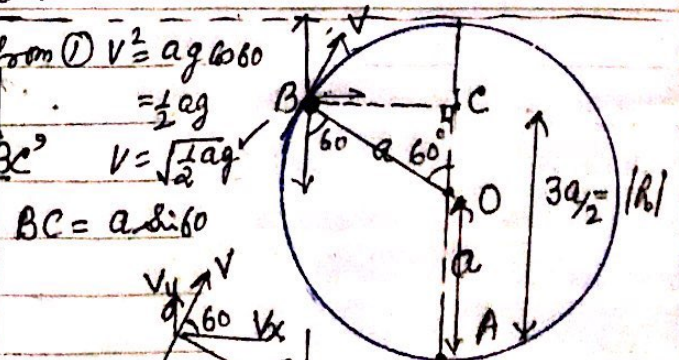 from ① V² = ag cos 60
= ½ ag
V = √½ag
BC = a sin 60
V
B
C
60
a
60°
O
3a/2 = |R₀|
a
A
Vy
V
60
Vx